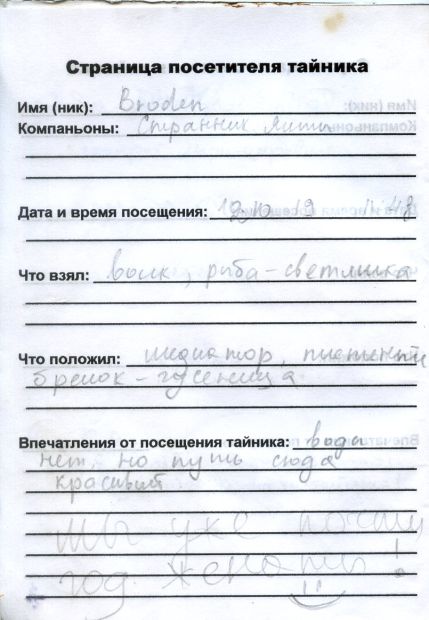 Страница посетителя тайника
Имя (ник): Broden
Компаньоны: Странник
Дата и время посещения:
Что взял: волк, рыба-светяшка
Что положил: медиатор, плетеный
брелок - гусеница
Впечатления от посещения тайника: воды
нет, но путь сюда
красивый
Мы уже почти
год женаты!